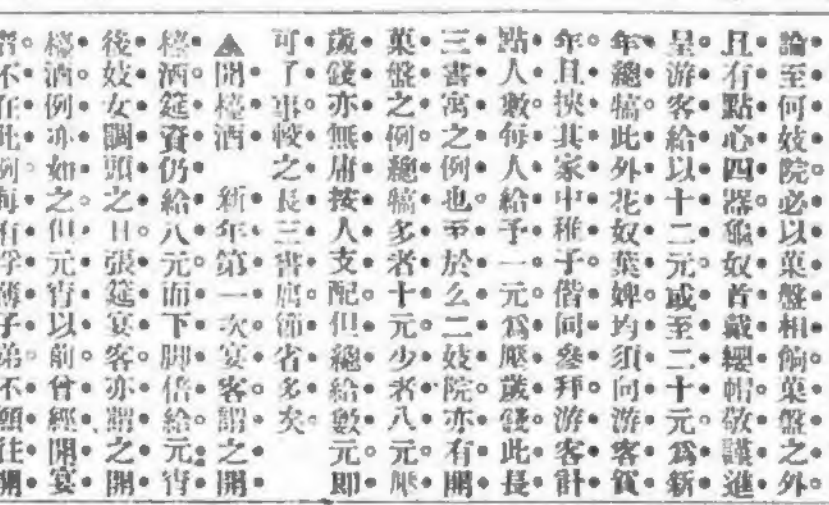 論至何妓院必以菓盤相餉菓盤之外
且有點心四器龜奴首戴纓帽敬謹進
呈游客給以十二元或至二十元爲新
年總犒此外花奴葉婢均須向游客賀
年且挾其家中稚子偕同叄拜游客計
點人數每人給予一元爲壓歲錢此長
三書寓之例也至於么二妓院亦有開
菓盤之例總犒多者十元少者八元壓
歲錢亦無庸按人支配但總給數元即
可了事較之長三書寓節省多矣
▲開檯酒 新年第一次宴客謂之開
檯酒筵資仍給八元而下脚倍給元宵
後妓女調頭之日張筵宴客亦謂之開
檯酒例亦如之但元宵以前曾經開宴
者不在此例每有浮薄子弟不願往開